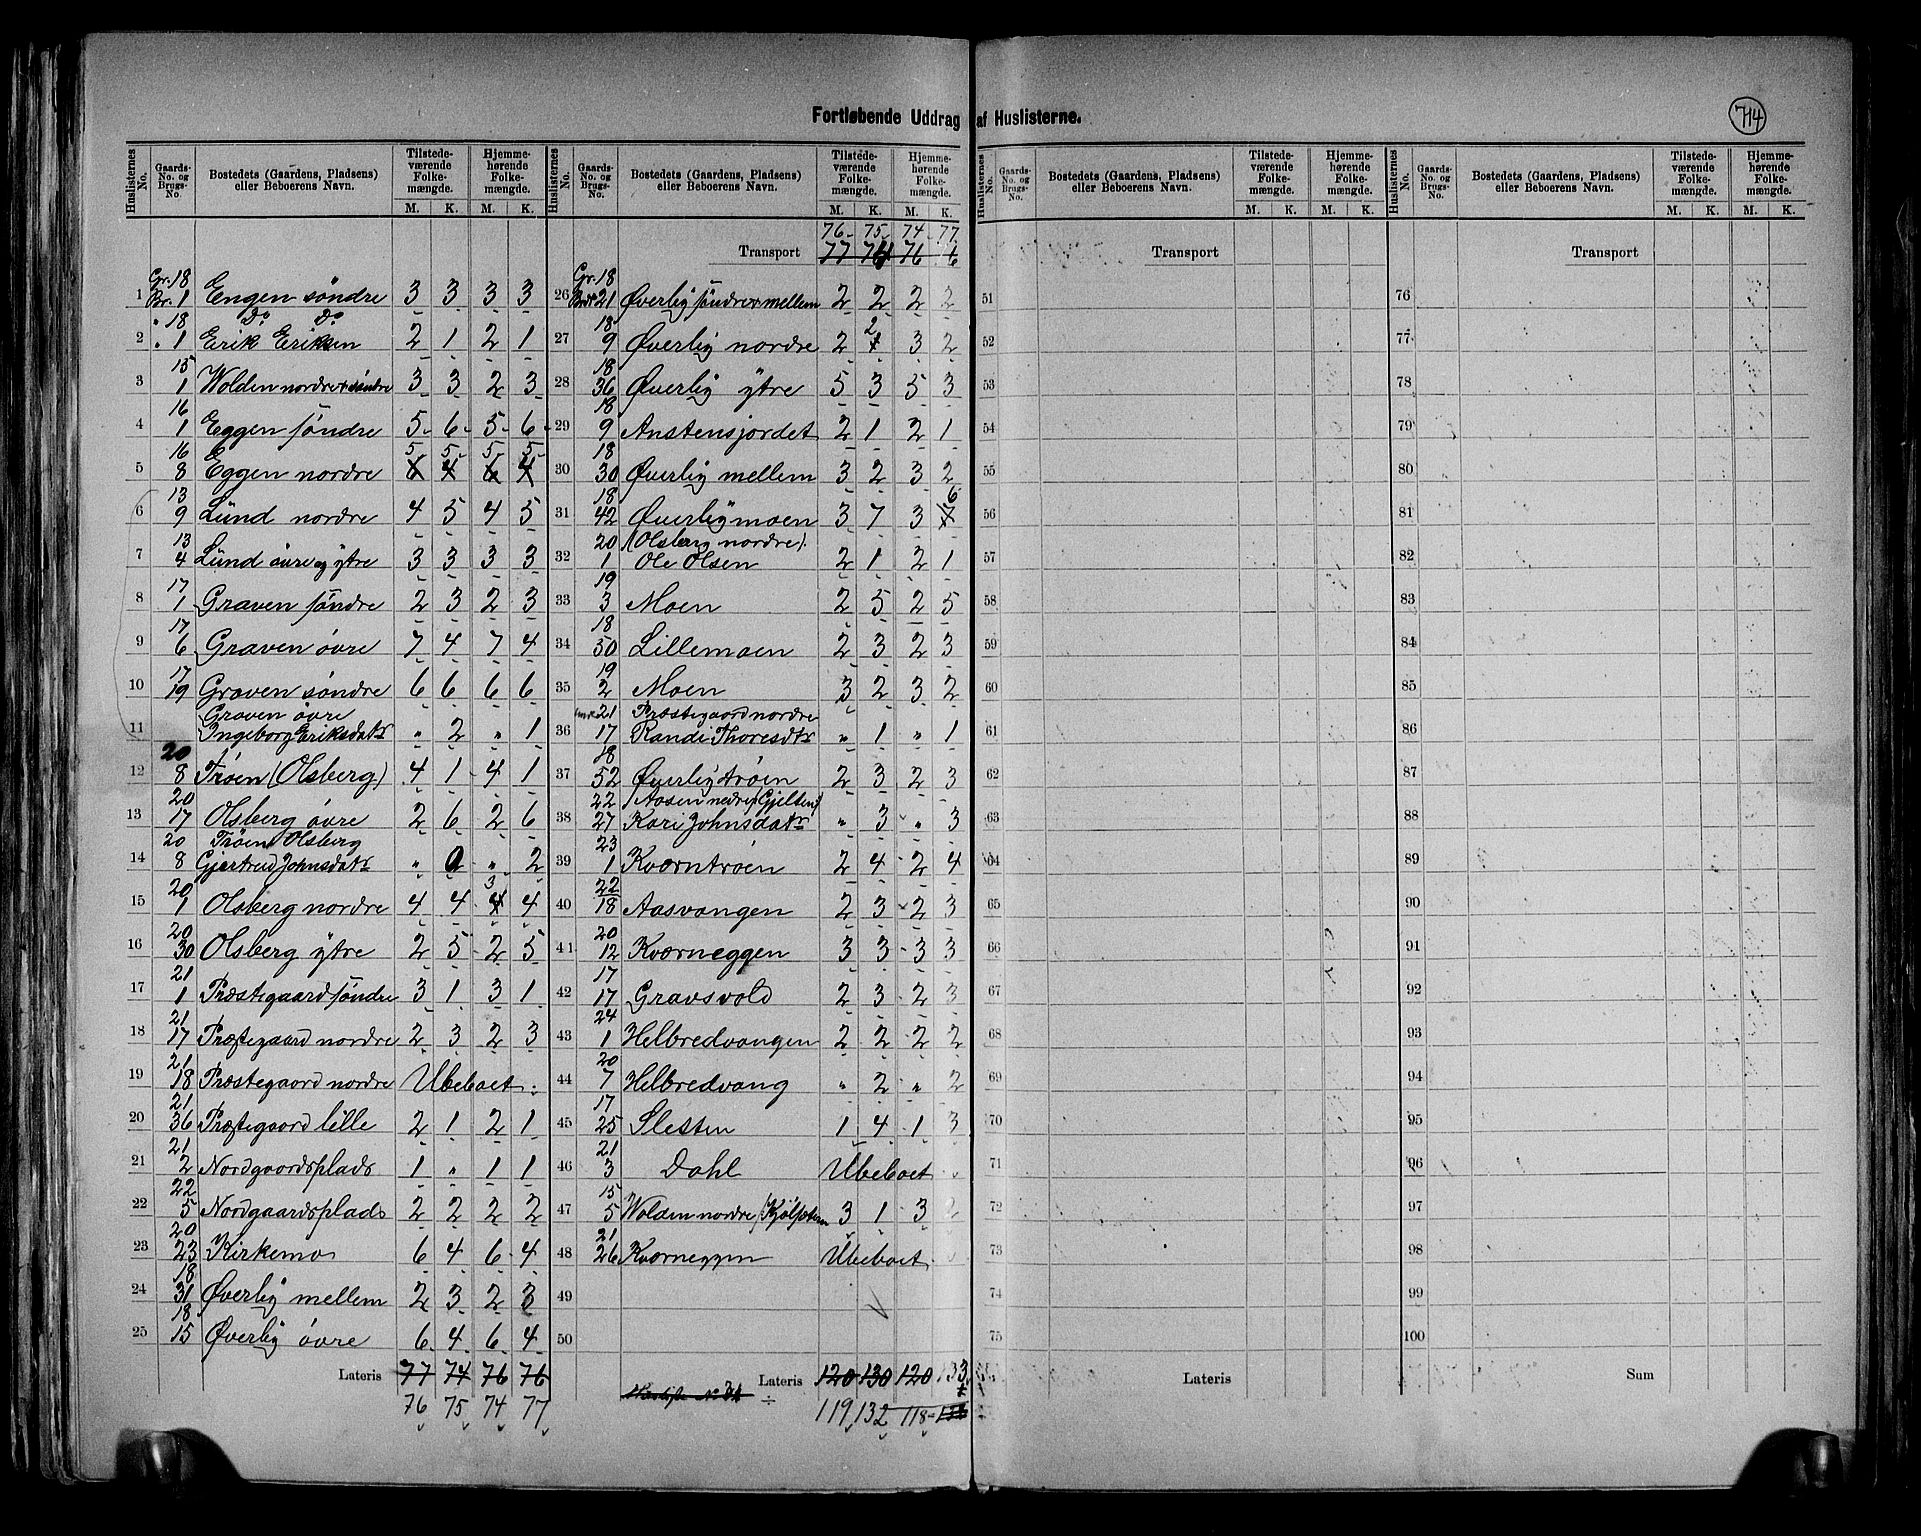 Fortløbende Uddrag af Huslisterne.
714
Huslisternes No. | Gaards-No. og Brugs-No. | Bostedets (Gaardens, Pladsens) eller Beboerens Navn. | Tilstede-værende Folke-mængde. M. K. | Hjemme-hørende Folke-mængde. M. K.
1 Gr. 18 Br. 1 Engen søndre 3 3 3 3
2 " 18 " 1 Do Do Erik Eriksen 2 1 2 1
3 15 1 Wolden nordre & søndre 3 3 2 3
4 16 1 Eggen søndre 5 6 5 6
5 16 8 Eggen nordre 5 5 5 5
6 13 9 Lund nordre 4 5 4 5
7 13 4 Lund øvre og ytre 3 3 3 3
8 17 1 Graven søndre 2 3 2 3
9 17 6 Graven øvre 7 4 7 4
10 17 19 Graven søndre 6 6 6 6
11 Graven øvre Ingeborg Eriksdatr " 2 " 1
12 20 8 Trøen (Olsberg) 4 1 4 1
13 20 17 Olsberg øvre 2 6 2 6
14 20 8 Trøen Olsberg Gjertrud Johnsdatr " 0 " 2
15 20 1 Olsberg nordre 4 4 3 4
16 20 30 Olsberg ytre 2 5 2 5
17 21 1 Præstegaard søndre 3 1 3 1
18 21 17 Præstegaard nordre 2 3 2 3
19 21 18 Præstegaard nordre Ubeboet
20 21 36 Præstegaard lille 2 1 2 1
21 21 2 Nordgaardsplads 1 " 1 1
22 22 5 Nordgaardsplads 2 2 2 2
23 20 23 Kirkemo 6 4 6 4
24 18 31 Øverby mellem 2 3 2 3
25 18 15 Øverby øvre 6 4 6 4
Lateris 77 74 76 76
76 75 74 77
76 75 74 77
Transport 77 74 76 6
26 Gr. 18 Br. 21 Øverby søndre & mellem 2 2 2 2
27 18 9 Øverby nordre 2 2 3 2
28 18 36 Øverby ytre 5 3 5 3
29 18 9 Anstensjordet 2 1 2 1
30 18 30 Øverby mellem 3 2 3 2
31 18 42 Øverbymoen 3 7 3 6
32 20 1 (Olsberg nordre) Ole Olsen 2 1 2 1
33 19 3 Moen 2 5 2 5
34 18 50 Lillemoen 2 3 2 3
35 19 2 Moen 3 2 3 2
36 21 17 Præstegaard nordre Randi Thoresdtr " 1 " 1
37 18 52 Øverbytrøen 2 3 2 3
38 22 27 Aasen nedre (Gjelten) Kari Johnsdatr " 3 " 3
39 23 1 Kværntrøen 2 4 2 4
40 22 18 Aasvangen 2 3 2 3
41 20 12 Kværneggen 3 3 3 3
42 17 17 Gravsvold 2 3 2 3
43 24 1 Helbredvangen 2 2 2 2
44 20 7 Helbredvang " 2 " 2
45 17 25 Sletten 1 4 1 3
46 21 3 Dahl Ubeboet
47 15 5 Wolden nordre 3 1 3 2
48 21 26 Kværneggen Ubeboet
49
50
Lateris 120 130 120 133
÷
119 132 118
Huslisternes No. | Gaards-No. og Brugs-No. | Bostedets (Gaardens, Pladsens) eller Beboerens Navn. | Tilstede-værende Folke-mængde. M. K. | Hjemme-hørende Folke-mængde. M. K.
Transport
51
52
53
54
55
56
57
58
59
60
61
62
63
64
65
66
67
68
69
70
71
72
73
74
75
Lateris
Transport
76
77
78
79
80
81
82
83
84
85
86
87
88
89
90
91
92
93
94
95
96
97
98
99
100
Sum